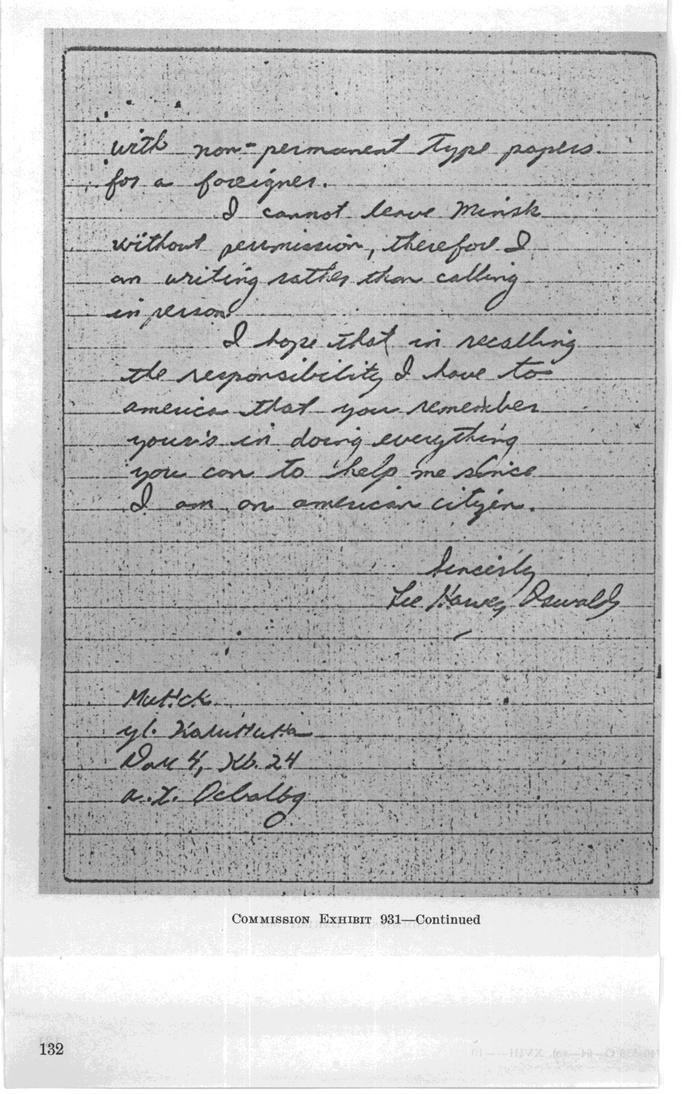 with non-permanent type papers.
for a foreigner.
I cannot leave Minsk
without permission, therefore I
am writing rather than calling
in person
I hope that in recalling
the responsibility I have to
america that you remember
your's in doing everything
you can to help me since
I am an american citizen.
Sincerly
Lee Harvey Oswald
Минск
ул. Калинина
Дом 4, Кв. 24
Освальд
COMMISSION EXHIBIT 931—Continued
132